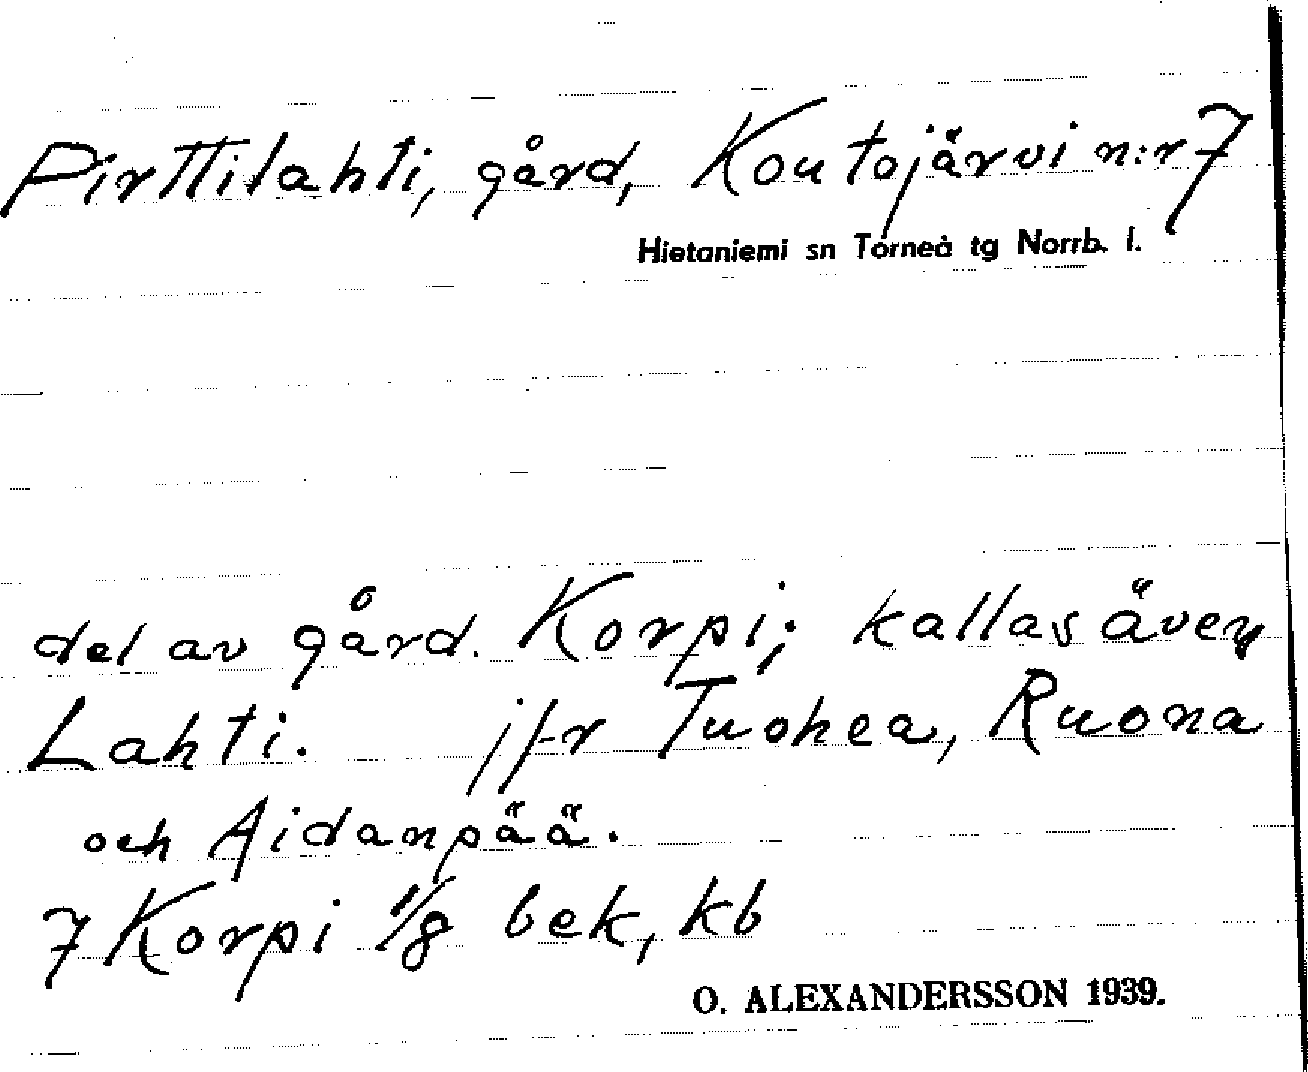 Pirttilahti, gård, Koutojärvi n:r 7
Hietaniemi sn Torneå tg Norrb. l.
del av gård. Korpi; kallas även
Lahti. jfr Tuohea, Ruona
och Aidanpää.
7 Korpi 1/8 bek, kb
O. ALEXANDERSSON 1939.